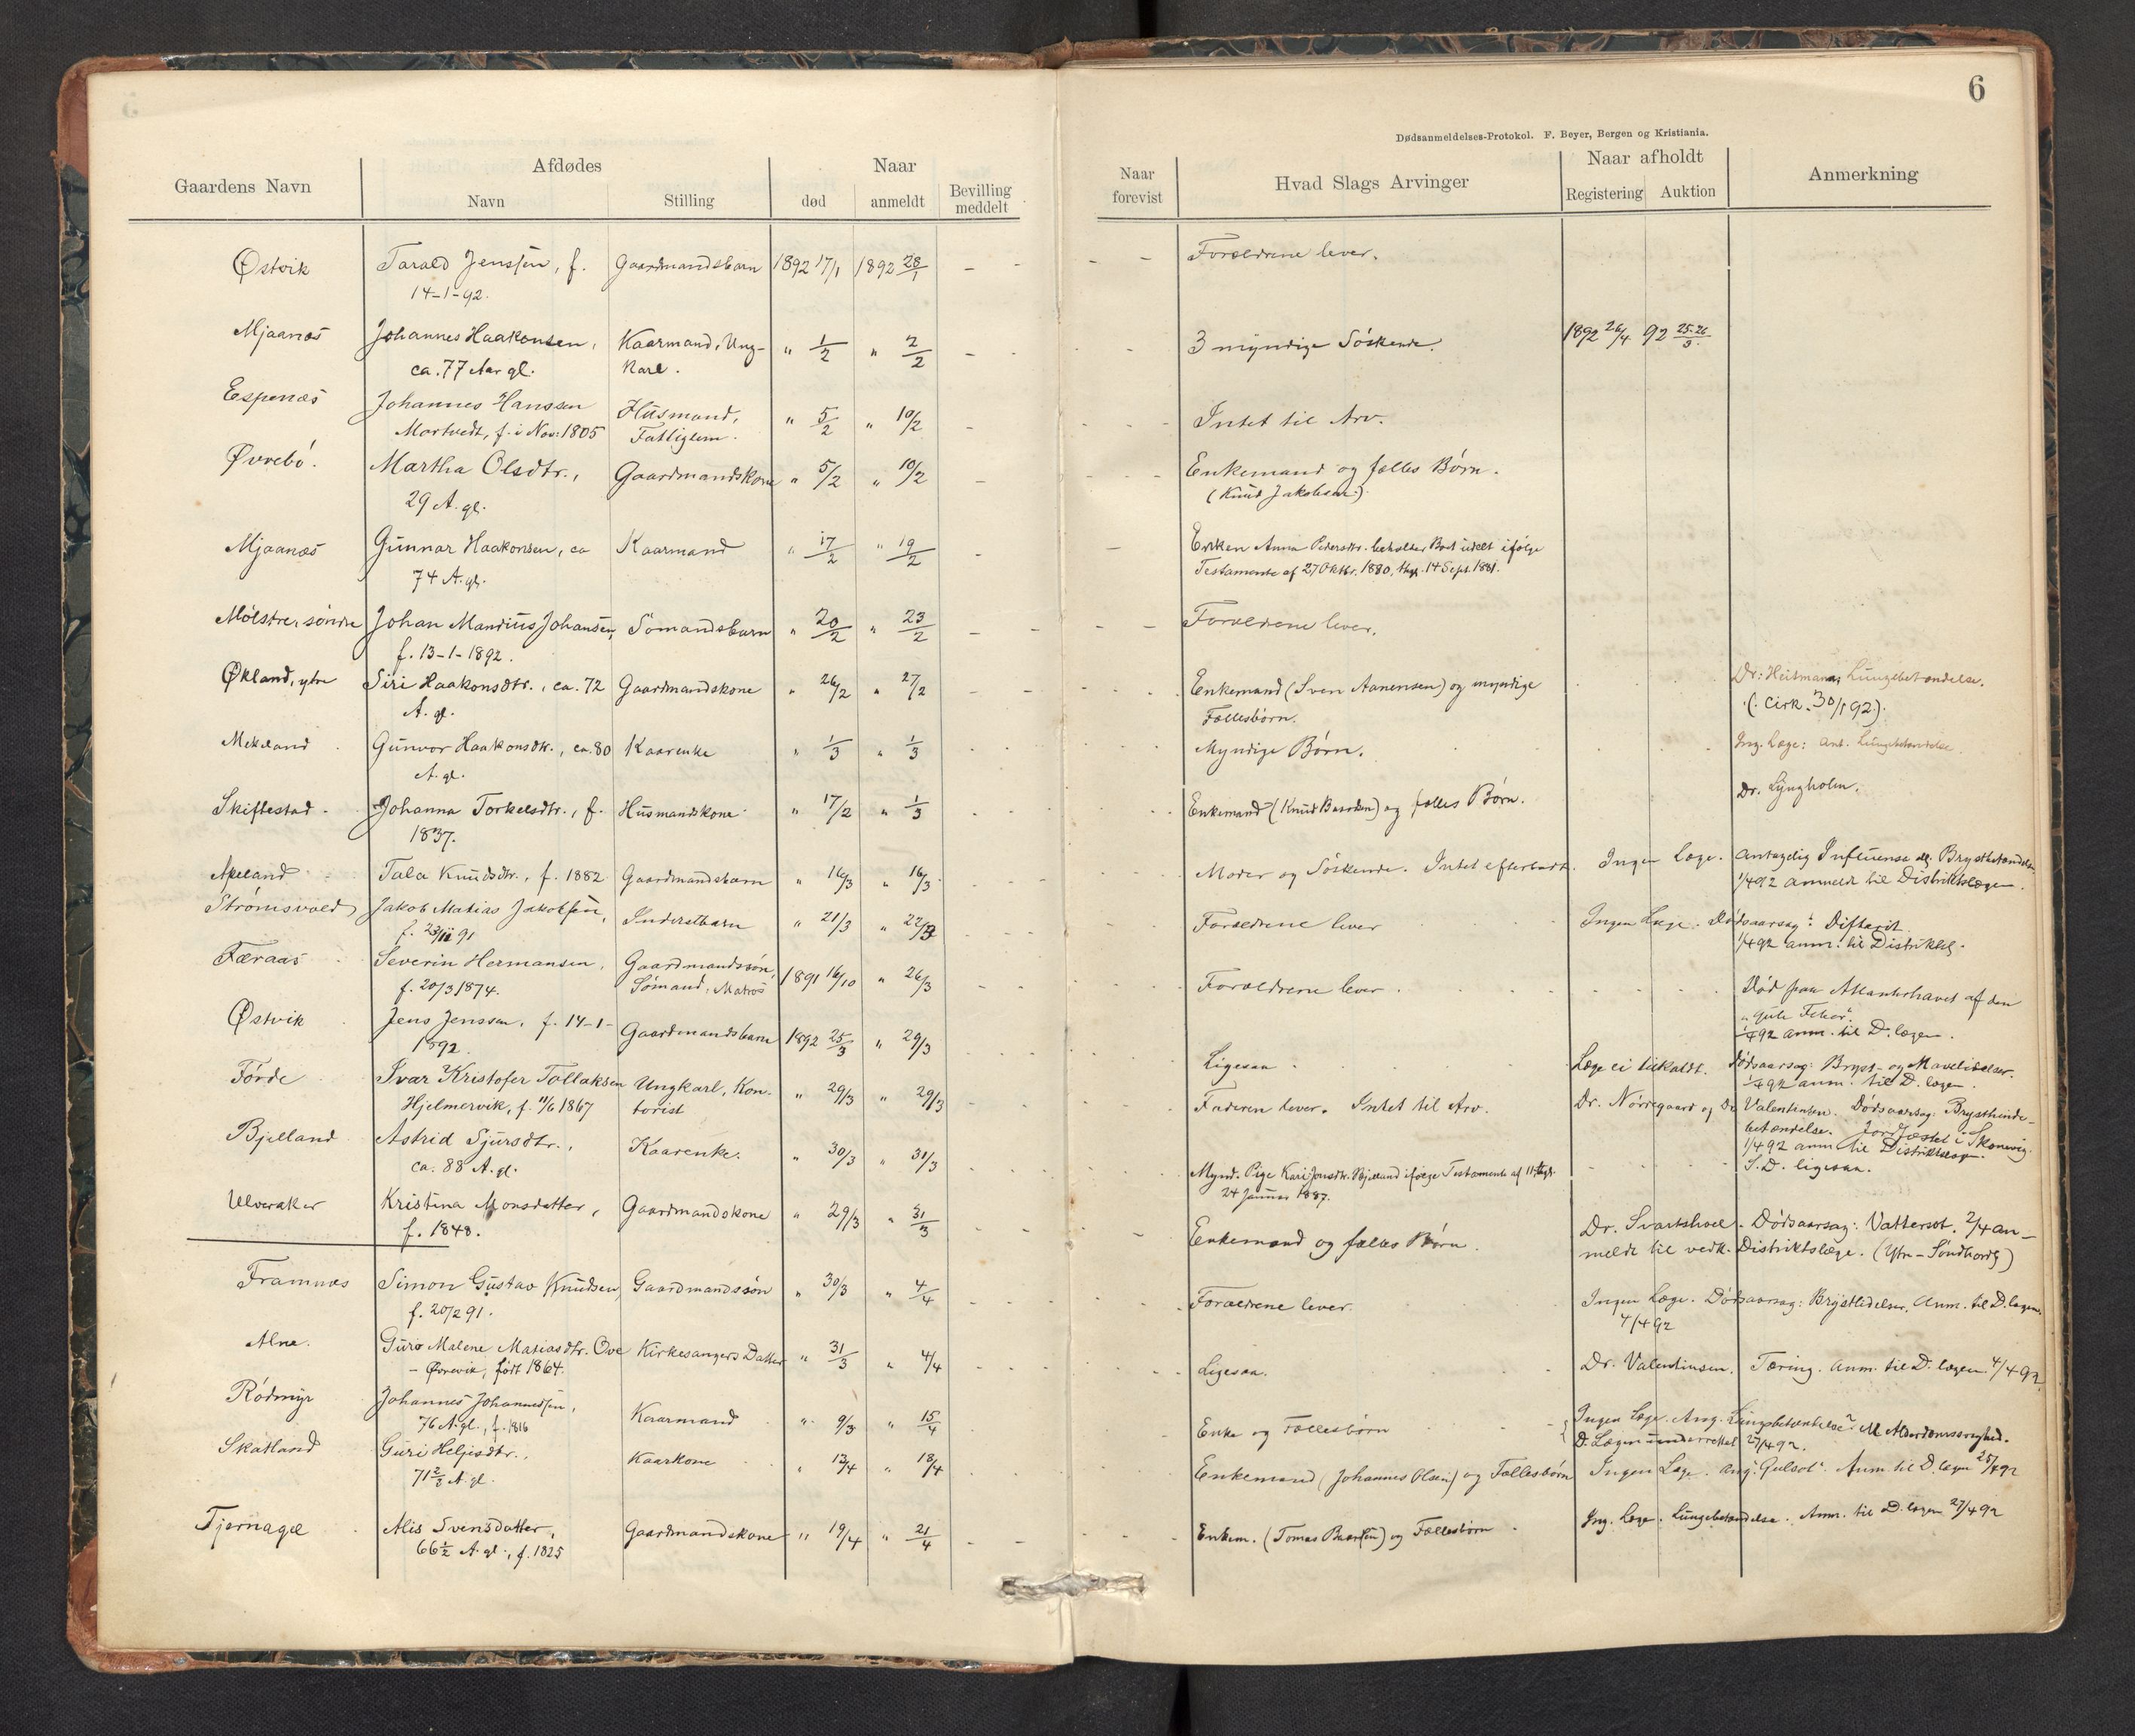 6
Dødsanmeldelses-Protokol. F. Beyer, Bergen og Kristiania.
Gaardens Navn Afdødes Naar Bevilling meddelt Naar forevist Hvad Slags Arvinger Naar afholdt Anmerkning
Navn Stilling død anmeldt Registering Auktion
Østvik Tarald Jenssen, f. Gaardmandsbarn 1892 17/1 1892 28/1 - - - - Forældrene lever.
14-1-92.
Mjaanæs Johannes Haakonsen, Kaarmand, Ung- " 1/2 " 2/2 - 3 myndige Söskende. 1892 26/4 92 25-26/3.
ca. 77 Aar gl. karl.
Espenæs Johannes Hanssen Husmand, " 5/2 " 10/2 - Intet til Arv.
Mortvedt, f. i Nov: 1805 Fattiglem.
Øvrebö. Martha Olsdtr., Gaardmandskone " 5/2 " 10/2 - Enkemand og fælles Börn.
29 A. gl. (Knud Jakobsen).
Mjaanæs Gunnar Haakonsen, ca Kaarmand " 17/2 " 19/2 - - Enken Anna Pedersdtr. beholder Boet udelt ifölge
74 A. gl. Testamente af 27 Oktbr. 1880, thgl. 14 Sept. 1881.
Mölstre, söndre Johan Mandius Johansen, Sömandsbarn " 20/2 " 23/2 - - - - Forældrene lever.
f. 13-1-1892.
Økland, ytre Siri Haakonsdtr., ca. 72 Gaardmandskone " 26/2 " 27/2 - - Enkemand (Sven Aanensen) og myndige Dr: Heitmann; Lungebetændelse.
A. gl. Fællesbörn. (Cirk. 30/1 92).
Mekeland Gunvor Haakonsdtr., ca. 80 Kaarenke " 1/3 " 1/3 Myndige Börn. Ing. Læge: ant. Lungebetændelse.
A. gl.
Skiftestad Johanna Torkelsdtr., f. Husmandskone " 17/2 " 1/3 Enkemand (Knud Baardsen) og fælles Börn. Dr. Lyngholm.
1837.
Apeland Tala Knudsdtr., f. 1882 Gaardmandsbarn " 16/3 " 16/3 Moder og Söskende. Intet efterladt. Ingen Læge. Antagelig Influensa og Brystbetændelse
1/4 92 anmeldt til Distriktslægen.
Strömsvold Jakob Matias Jakobsen, Inderstbarn " 21/3 " 22/3 Forældrene lever Ingen Læge. Dödsaarsag: Difterit.
f. 23/11 91 1/4 92 anm. til Distriktsl.
Færaas Severin Hermansen, Gaardmandssön, 1891 16/10 " 26/3 Forældrene lever. Död paa Atlanterhavet af den
f. 20/3 1874. Sömand, Matros "gule Feber".
Østvik Jens Jenssen, f. 14-1- Gaardmandsbarn 1892 25/3 " 29/3 Ligesaa 1/4 92 anm. til D. lægen.
1892. Læge ei tilkaldt. Dödsaarsag: Bryst- og Mavelidelser.
Förde Ivar Kristofer Tollaksen Ungkarl, Kon- " 29/3 " 29/3 Faderen lever. Intet til Arv. 1/4 92 anm. til D. lægen.
Hjelmervik, f. 11/6 1867 torist Dr. Nörregaard og Dr Valentinsen. Dödsaarsag: Brysthinde-
betændelse. Jordfæstet i Skonevig.
1/4 92 anm til Distriktslæge.
Bjelland Astrid Sjursdtr., Kaarenke. " 30/3 " 31/3 Mynd. Pige Kari Jonsdtr. Bjelland ifölge Testamente af 11, thgl. S. D. ligesaa.
ca. 88 A. gl. 24 Januar 1887.
Ulveraker Kristina Monsdatter, Gaardmandskone " 29/3 " 31/3 Enkemand og fælles Börn. Dr. Svartshoel. Dödsaarsag: Vattersot. 2/4 an-
f. 1848. meldt til vedk. Distriktslæge. (Ytr-Söndhordl)
Framnæs Simon Gustav Knudsen, Gaardmandssön " 30/3 " 4/4 Forældrene lever. Ingen Læge. Dödsaarsag: Brystlidelser. Anm. til D. lægen
f. 20/2 91. 4/4 92
Alne. Guro Malene Matiasdtr. Ove Kirkesangers Datter " 31/3 " 4/4 Ligesaa. Dr. Valentinsen. Tæring. Anm. til D. lægen 4/4 92
- Øvrevik, födt 1864.
Rödmyr Johannes Johannessen, Kaarmand " 9/3 " 15/4 Enke og Fællesbörn Ingen Læge. Ang. Lungebetændelse Alderdomssvaghed.
76 A. gl., f. 1816 D. Lægen underrettet 27/4 92.
Skatland Guri Heljesdtr., Kaarkone " 13/4 " 18/4 Enkemand (Johannes Olsen) og Fællesbörn Ingen Læge. Ang. "Gulsot". Anm. til D. lægen 25/4 92
71 1/2 A. gl.
Tjernagel Alis Svensdatter, Gaardmandskone " 19/4 " 21/4 - - Enkem. (Tomas Baardsen) og Fællesbörn Ing. Læge. Lungebetændelse. Anm. til D. lægen 27/4 92
66 1/2 A. gl., f. 1825